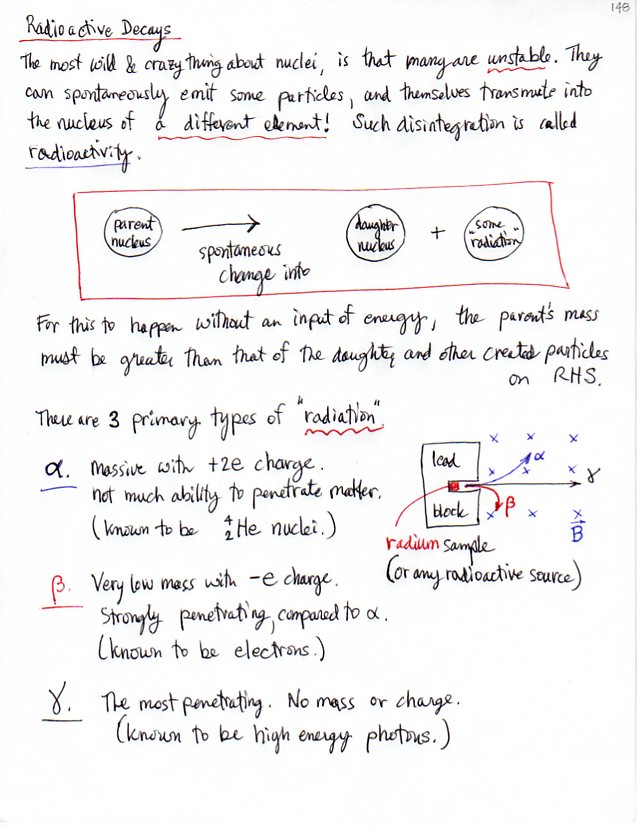 148
Radioactive Decays
The most wild & crazy thing about nuclei, is that many are unstable. They
can spontaneously emit some particles, and themselves transmute into
the nucleus of a different element! Such disintegration is called
radioactivity.
parent
nucleus
spontaneous
change into
daughter
nucleus
+
some
"radiation"
For this to happen without an input of energy, the parent's mass
must be greater than that of the daughter and other created particles
on RHS.
There are 3 primary types of "radiation".
α. Massive with +2e charge.
not much ability to penetrate matter.
(known to be ⁴₂He nuclei.)
lead
block
x x x
x x x
x x x
α
γ
β
B
radium sample
(or any radioactive source)
β. Very low mass with -e charge.
Strongly penetrating, compared to α.
(known to be electrons.)
γ. The most penetrating. No mass or charge.
(known to be high energy photons.)